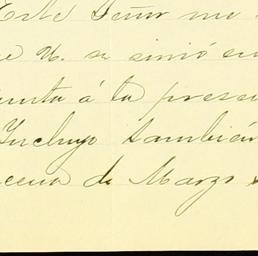 Este Señor me
e U. se sirvió en
unta á la prese
Incluyo también
cena de Marzo